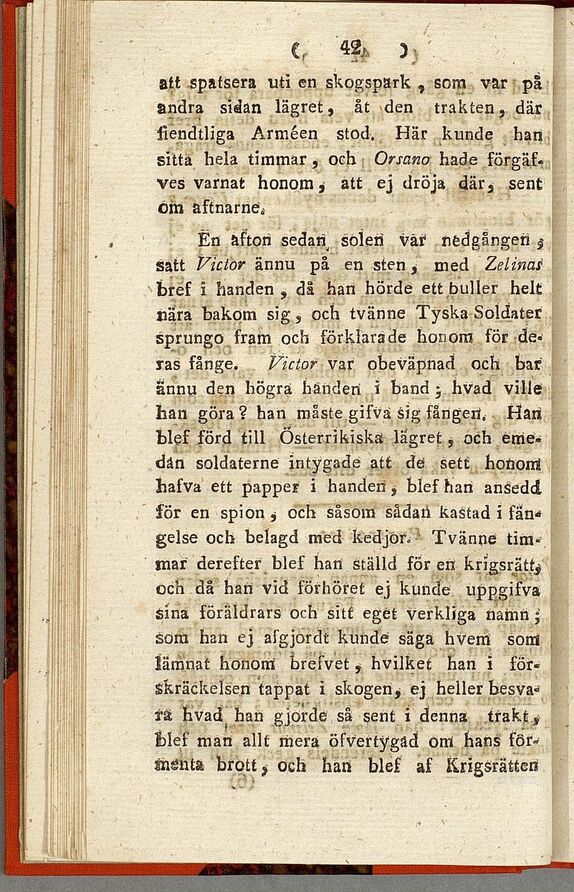 ( 42 )
att spatsera uti en skogspark, som var på
andra sidan lägret, åt den trakten, där
fiendtliga Arméen stod. Här kunde han
sitta hela timmar, och Orsano hade förgäf-
ves varnat honom, att ej dröja där, sent
om aftnarne.
En afton sedan solen var nedgången,
satt Victor ännu på en sten, med Zelinas
bref i handen, då han hörde ett buller helt
nära bakom sig, och tvänne Tyska Soldater
sprungo fram och förklarade honom för de-
ras fånge. Victor var obeväpnad och bar
ännu den högra handen i band; hvad ville
han göra? han måste gifva sig fången. Han
blef förd till Österrikiska lägret, och eme-
dan soldaterne intygade att de sett honom
hafva ett papper i handen, blef han ansedd
för en spion, och såsom sådan kastad i fän-
gelse och belagd med kedjor. Tvänne tim-
mar derefter blef han ställd för en krigsrätt,
och då han vid förhöret ej kunde uppgifva
sina föräldrars och sitt eget verkliga namn;
som han ej afgjordt kunde säga hvem som
lämnat honom brefvet, hvilket han i för-
skräckelsen tappat i skogen, ej heller besva-
ra hvad han gjorde så sent i denna trakt,
blef man allt mera öfvertygad om hans för-
menta brott, och han blef af Krigsrätten